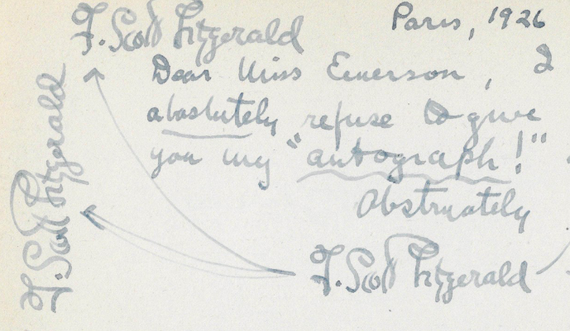 F. Scott Fitzgerald
Paris, 1926
Dear Miss Emerson, I
absolutely refuse to give
you my "autograph!"
Obstinately
F. Scott Fitzgerald
F. Scott Fitzgerald